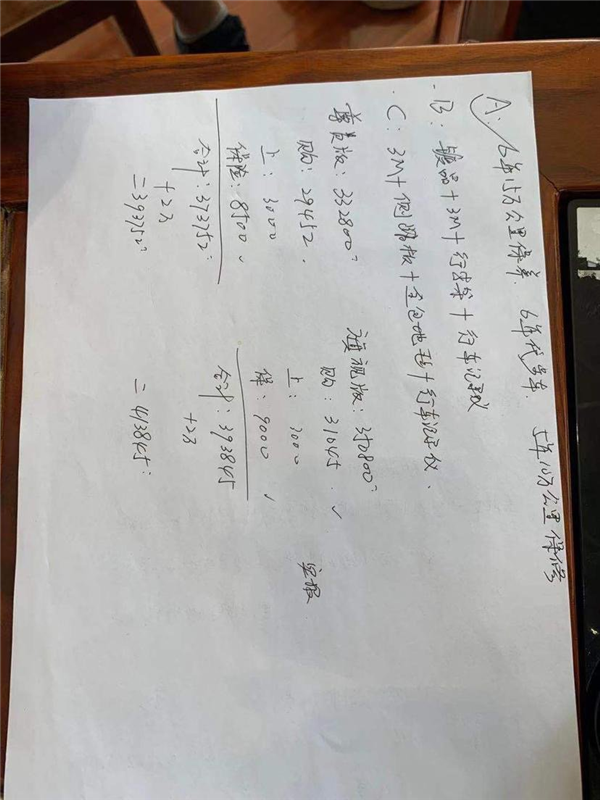 A: 6年15万公里保养 6年代步车 5年10万公里保修
B: 镀晶+3M+行李架+行车记录仪
C: 3M+侧踏板+全包地毯+行车记录仪.
尊贵版: 332800
购: 29452.
上: 3000
保险: 8500 ✓
合计: 373752
+2万
=393752
旗舰版: 350800
购: 31045 ✓
上: 3000
保: 9000 ✓
合计: 393845
+2万
=413845